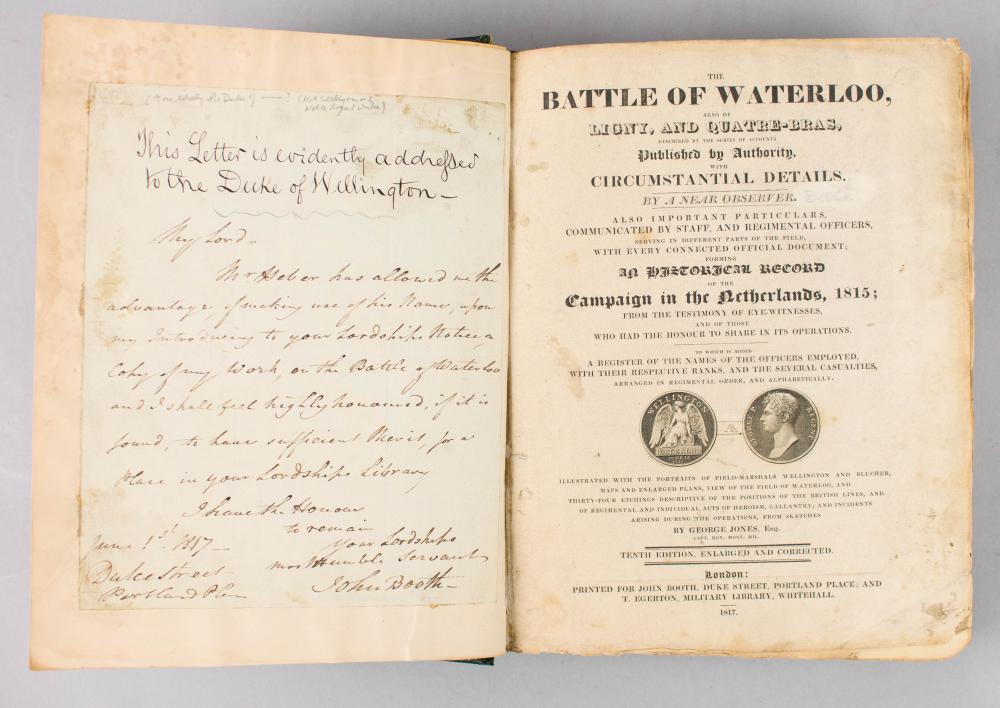 (More likely the Duke of —— ? (Not Wellington as
Not a Royal Duke)
This Letter is evidently addressed
to the Duke of Wellington —
My Lord —
Mr Heber has allowed me the
advantage, of making use of his Name, upon
my Introducing to your Lordships Notice, a
Copy of my Work, on the Battle of Waterloo
and I shall feel highly honoured, if it is
found, to have sufficient Merit, for a
Place in your Lordships Library
I have the Honour
to remain
your Lordships
most Humble Servant
John Booth —
June 1st. 1817 —
Duke Street
Portland Place
THE
BATTLE OF WATERLOO,
ALSO OF
LIGNY, AND QUATRE-BRAS,
DESCRIBED BY THE SERIES OF ACCOUNTS
Published by Authority,
WITH
CIRCUMSTANTIAL DETAILS.
BY A NEAR OBSERVER.
ALSO IMPORTANT PARTICULARS,
COMMUNICATED BY STAFF, AND REGIMENTAL OFFICERS,
SERVING IN DIFFERENT PARTS OF THE FIELD,
WITH EVERY CONNECTED OFFICIAL DOCUMENT;
FORMING
AN HISTORICAL RECORD
OF THE
Campaign in the Netherlands, 1815;
FROM THE TESTIMONY OF EYE-WITNESSES,
AND OF THOSE
WHO HAD THE HONOUR TO SHARE IN ITS OPERATIONS.
TO WHICH IS ADDED
A REGISTER OF THE NAMES OF THE OFFICERS EMPLOYED,
WITH THEIR RESPECTIVE RANKS, AND THE SEVERAL CASUALTIES,
ARRANGED IN REGIMENTAL ORDER, AND ALPHABETICALLY.
WELLINGTON
WATERLOO
JUNE 18
1815
GEORGE P. REGENT
ILLUSTRATED WITH THE PORTRAITS OF FIELD-MARSHALS WELLINGTON AND BLUCHER,
MAPS AND ENLARGED PLANS, VIEW OF THE FIELD OF WATERLOO, AND
THIRTY-FOUR ETCHINGS DESCRIPTIVE OF THE POSITIONS OF THE BRITISH LINES, AND
OF REGIMENTAL AND INDIVIDUAL ACTS OF HEROISM, GALLANTRY, AND INCIDENTS
ARISING DURING THE OPERATIONS, FROM SKETCHES
BY GEORGE JONES, Esq.
CAPT. ROY. MONT. MIL.
TENTH EDITION, ENLARGED AND CORRECTED.
London:
PRINTED FOR JOHN BOOTH, DUKE STREET, PORTLAND PLACE; AND
T. EGERTON, MILITARY LIBRARY, WHITEHALL.
1817.